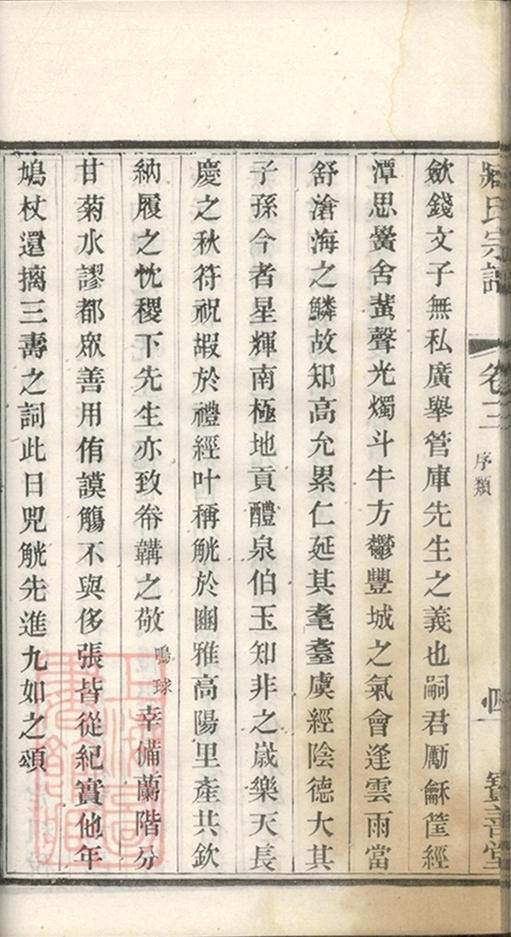 氏宗譜 卷三 序類 寶善堂
歛錢文子無私廣舉管庫先生之義也嗣君勵龢筐經
潭思黌舍蜚聲光燭斗牛方鬱豐城之氣會逢雲雨當
舒滄海之鱗故知高允累仁延其耄耋虞經陰德大其
子孫今者星輝南極地貢醴泉伯玉知非之歲樂天長
慶之秋符祝嘏於禮經叶稱觥於豳雅高陽里產共欽
納履之忱稷下先生亦致帣韝之敬鳴球幸備蘭階分
甘菊水謬都眾善用侑謨觴不與侈張皆從紀實他年
鳩杖還摛三壽之詞此日兕觥先進九如之頌